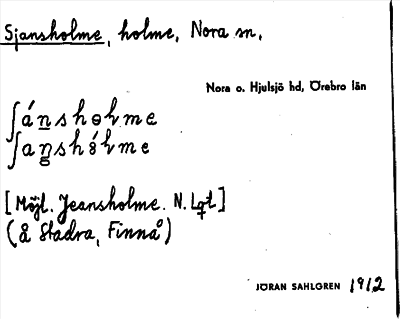 Sjansholme, holme, Nora sn.
Nora o. Hjulsjö hd, Örebro län
ʃánshɵlme
ʃaŋshɵ́lme
[Möjl. Jeansholme. N. Lgt]
(å Stadra, Finnå)
JÖRAN SAHLGREN 1912